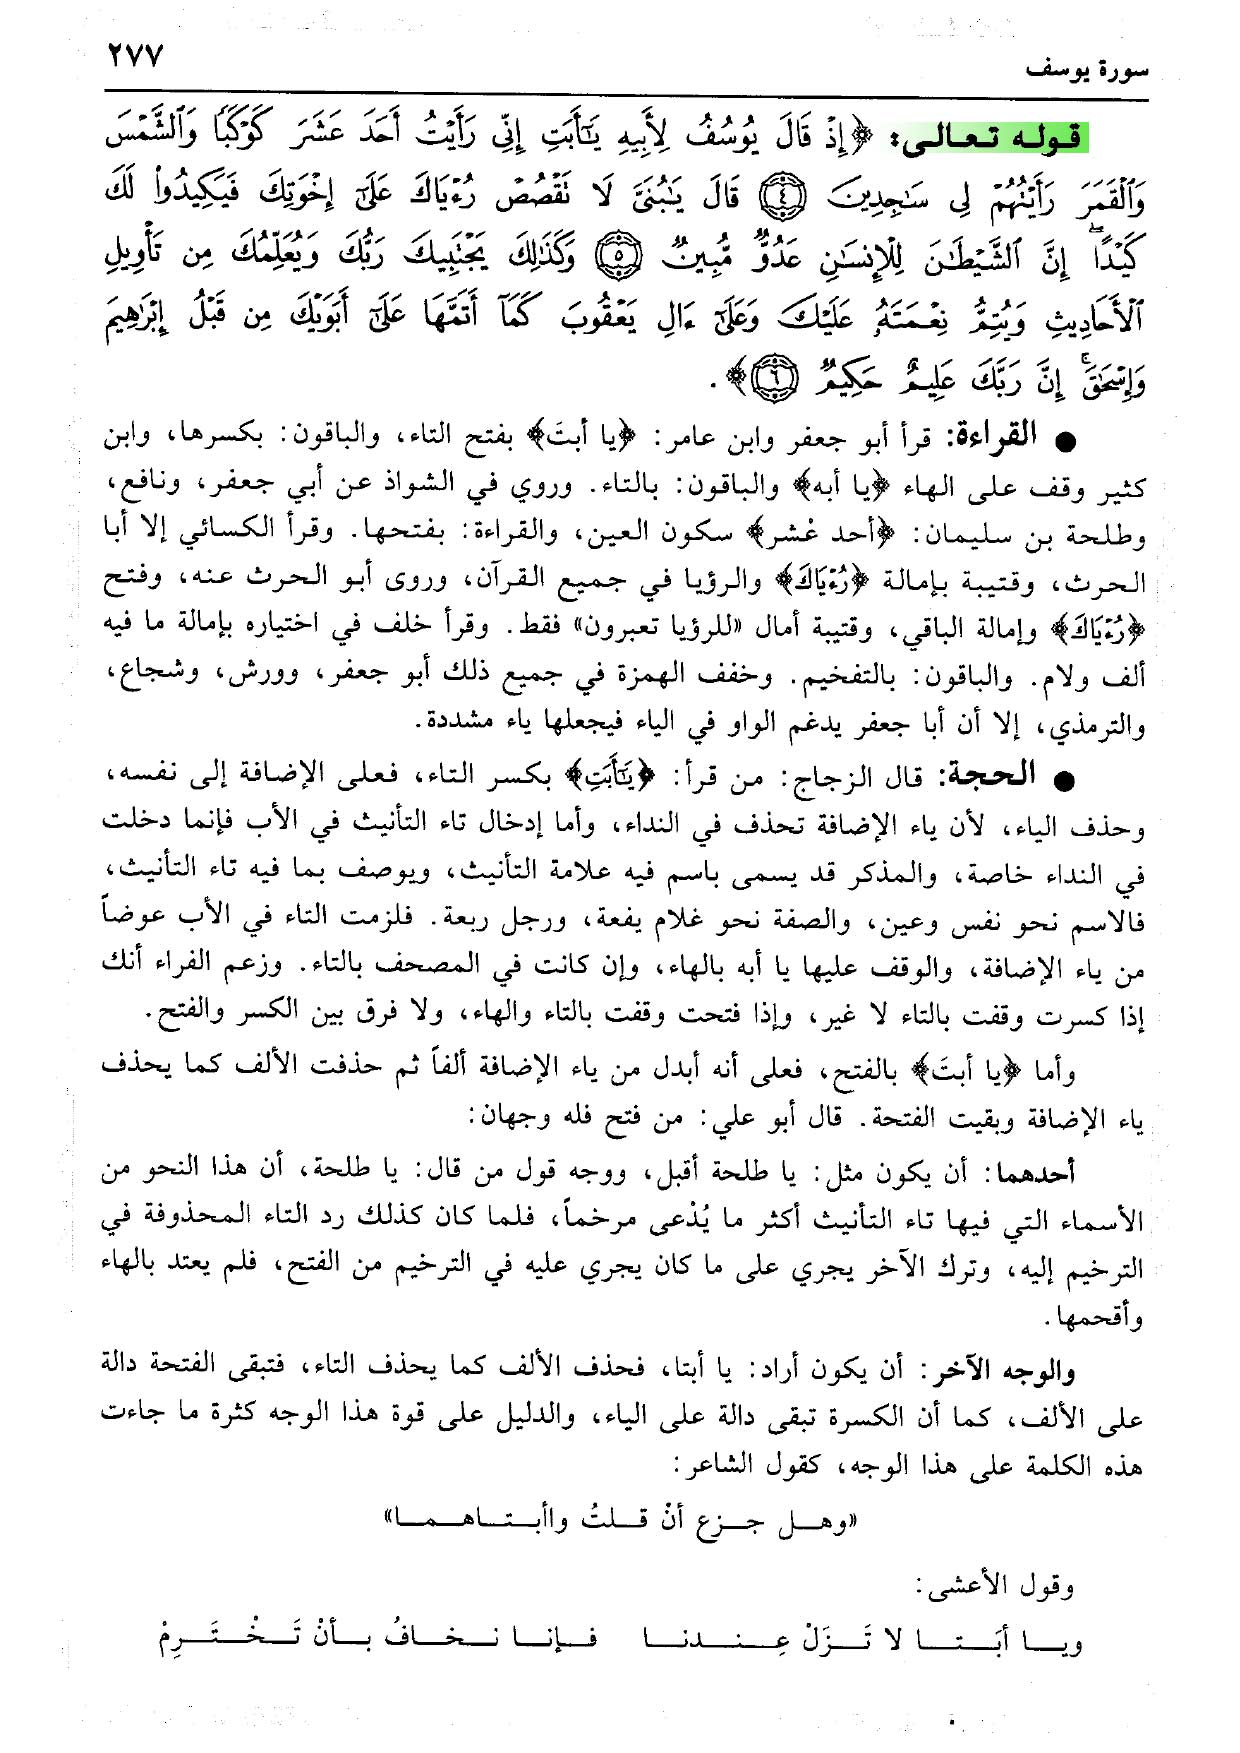 سورة يوسف
٢٧٧
قوله تعالى: ﴿إِذْ قَالَ يُوسُفُ لِأَبِيهِ يَٰٓأَبَتِ إِنِّي رَأَيْتُ أَحَدَ عَشَرَ كَوْكَبًا وَٱلشَّمْسَ
وَٱلْقَمَرَ رَأَيْتُهُمْ لِي سَٰجِدِينَ ﴿٤﴾ قَالَ يَٰبُنَيَّ لَا تَقْصُصْ رُءْيَاكَ عَلَىٰٓ إِخْوَتِكَ فَيَكِيدُوا۟ لَكَ
كَيْدًا ۖ إِنَّ ٱلشَّيْطَٰنَ لِلْإِنسَٰنِ عَدُوٌّ مُّبِينٌ ﴿٥﴾ وَكَذَٰلِكَ يَجْتَبِيكَ رَبُّكَ وَيُعَلِّمُكَ مِن تَأْوِيلِ
ٱلْأَحَادِيثِ وَيُتِمُّ نِعْمَتَهُۥ عَلَيْكَ وَعَلَىٰٓ ءَالِ يَعْقُوبَ كَمَآ أَتَمَّهَا عَلَىٰٓ أَبَوَيْكَ مِن قَبْلُ إِبْرَٰهِيمَ
وَإِسْحَٰقَ ۚ إِنَّ رَبَّكَ عَلِيمٌ حَكِيمٌ ﴿٦﴾﴾.
● القراءة: قرأ أبو جعفر وابن عامر: ﴿يا أبتَ﴾ بفتح التاء، والباقون: بكسرها، وابن
كثير وقف على الهاء ﴿يا أبه﴾ والباقون: بالتاء. وروي في الشواذ عن أبي جعفر، ونافع،
وطلحة بن سليمان: ﴿أحد عْشر﴾ سكون العين، والقراءة: بفتحها. وقرأ الكسائي إلا أبا
الحرث، وقتيبة بإمالة ﴿رُءْيَاكَ﴾ والرؤيا في جميع القرآن، وروى أبو الحرث عنه، وفتح
﴿رُءْيَاكَ﴾ وإمالة الباقي، وقتيبة أمال «للرؤيا تعبرون» فقط. وقرأ خلف في اختياره بإمالة ما فيه
ألف ولام. والباقون: بالتفخيم. وخفف الهمزة في جميع ذلك أبو جعفر، وورش، وشجاع،
والترمذي، إلا أن أبا جعفر يدغم الواو في الياء فيجعلها ياء مشددة.
● الحجة: قال الزجاج: من قرأ: ﴿يَٰٓأَبَتِ﴾ بكسر التاء، فعلى الإضافة إلى نفسه،
وحذف الياء، لأن ياء الإضافة تحذف في النداء، وأما إدخال تاء التأنيث في الأب فإنما دخلت
في النداء خاصة، والمذكر قد يسمى باسم فيه علامة التأنيث، ويوصف بما فيه تاء التأنيث،
فالاسم نحو نفس وعين، والصفة نحو غلام يفعة، ورجل ربعة. فلزمت التاء في الأب عوضاً
من ياء الإضافة، والوقف عليها يا أبه بالهاء، وإن كانت في المصحف بالتاء. وزعم الفراء أنك
إذا كسرت وقفت بالتاء لا غير، وإذا فتحت وقفت بالتاء والهاء، ولا فرق بين الكسر والفتح.
وأما ﴿يا أبتَ﴾ بالفتح، فعلى أنه أبدل من ياء الإضافة ألفاً ثم حذفت الألف كما يحذف
ياء الإضافة وبقيت الفتحة. قال أبو علي: من فتح فله وجهان:
أحدهما: أن يكون مثل: يا طلحة أقبل، ووجه قول من قال: يا طلحة، أن هذا النحو من
الأسماء التي فيها تاء التأنيث أكثر ما يُدْعى مرخماً، فلما كان كذلك رد التاء المحذوفة في
الترخيم إليه، وترك الآخر يجري على ما كان يجري عليه في الترخيم من الفتح، فلم يعتد بالهاء
وأقحمها.
والوجه الآخر: أن يكون أراد: يا أبتا، فحذف الألف كما يحذف التاء، فتبقى الفتحة دالة
على الألف، كما أن الكسرة تبقى دالة على الياء، والدليل على قوة هذا الوجه كثرة ما جاءت
هذه الكلمة على هذا الوجه، كقول الشاعر:
«وهل جزع أنْ قلتُ واأبتاهما»
وقول الأعشى:
ويا أبَتا لا تَزَلْ عِندنا فإنا نخافُ بأنْ تَخْتَرِمْ